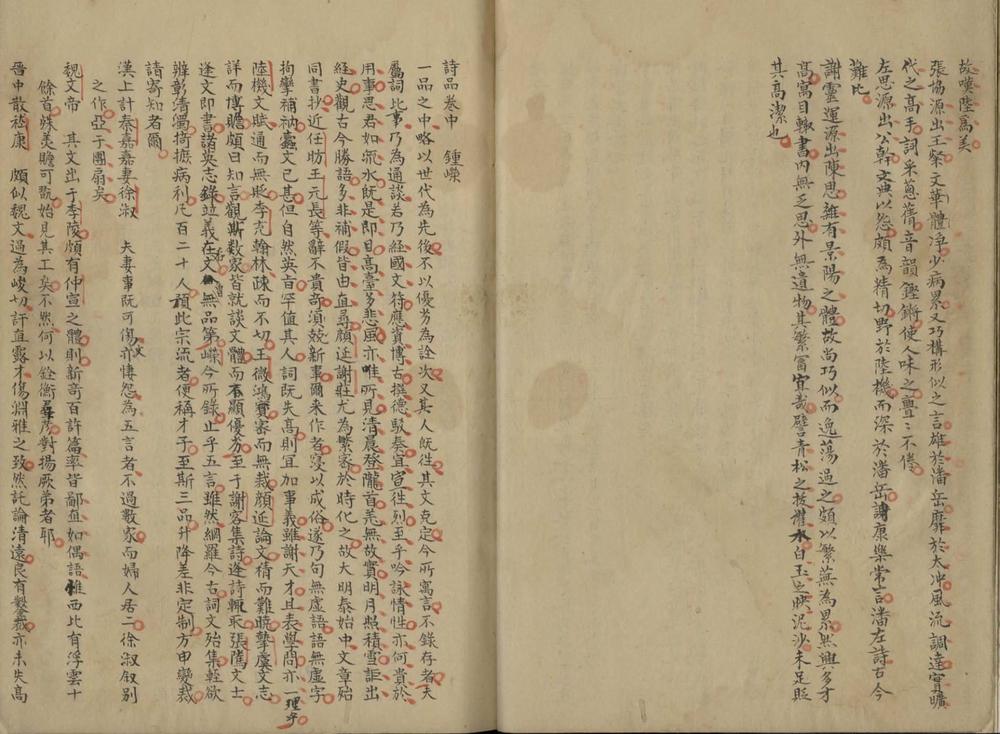 故嘆陸為美
張協源出王粲文華體淨少病累又巧構形似之言雄於潘岳靡於太冲風流調達實曠
代之高手詞采葱蒨音韻鏗鏘使人味之亹〻不倦
左思源出公幹文典以怨頗為精切野於陸機而深於潘岳謝康樂常言潘左詩古今
難比
謝靈運源出陳思雜有景陽之體故尚巧似而逸蕩過之頗以繁蕪為累然興多才
高寓目輙書內無乏思外無遺物其繁富宜哉譬青松之拔灌木白玉之映泥沙未足貶
其高潔也
詩品卷中　鍾嶸
一品之中略以世代為先後不以優劣為詮次又其人既徃其文克定今所寓言不錄存者夫
屬詞比事乃為通談若乃經國文符應資博古撰德駁奏宜窮徃烈至乎吟詠情性亦何貴於
用事思君如流水既是即目高臺多悲風亦唯所見清晨登隴首羌無故實明月照積雪詎出
經史觀古今勝語多非補假皆由直尋顏延謝莊尤為繁密於時化之故大明泰始中文章殆
同書抄近任昉王元長等辭不貴奇須競新事爾來作者寖以成俗遂乃句無虛語語無虛字
拘攣補衲蠹文已甚但自然英旨罕值其人詞既失高則宜加事義雖謝天才且表學問亦一理乎
陸機文賦通而無貶李充翰林疎而不切王微鴻寶密而無裁顏延論文精而難曉摯虞文志
詳而博贍頗曰知言觀斯數家皆就談文體而不顯優劣至于謝客集詩逢詩輒取張隲文士
逢文即書諸英志錄竝義在文無品第嶸今所錄止乎五言雖然網羅今古詞文殆集輕欲
辨彰清濁掎摭病利凡百二十人預此宗流者便稱才子至斯三品升降差非定制方申變裁
請寄知者爾
漢上計秦嘉嘉妻徐淑　夫妻事既可傷文亦悽怨為五言者不過數家而婦人居二徐淑叙別
之作亞于團扇矣
魏文帝　其文出于李陵頗有仲宣之體則新奇百許篇率皆鄙直如偶語惟西北有浮雲十
餘首殊美贍可翫始見其工矣不然何以銓衡羣彥對揚厥弟者耶
晉中散嵇康　頗似魏文過為峻切訐直露才傷淵雅之致然託論清遠良有鑒裁亦未失高